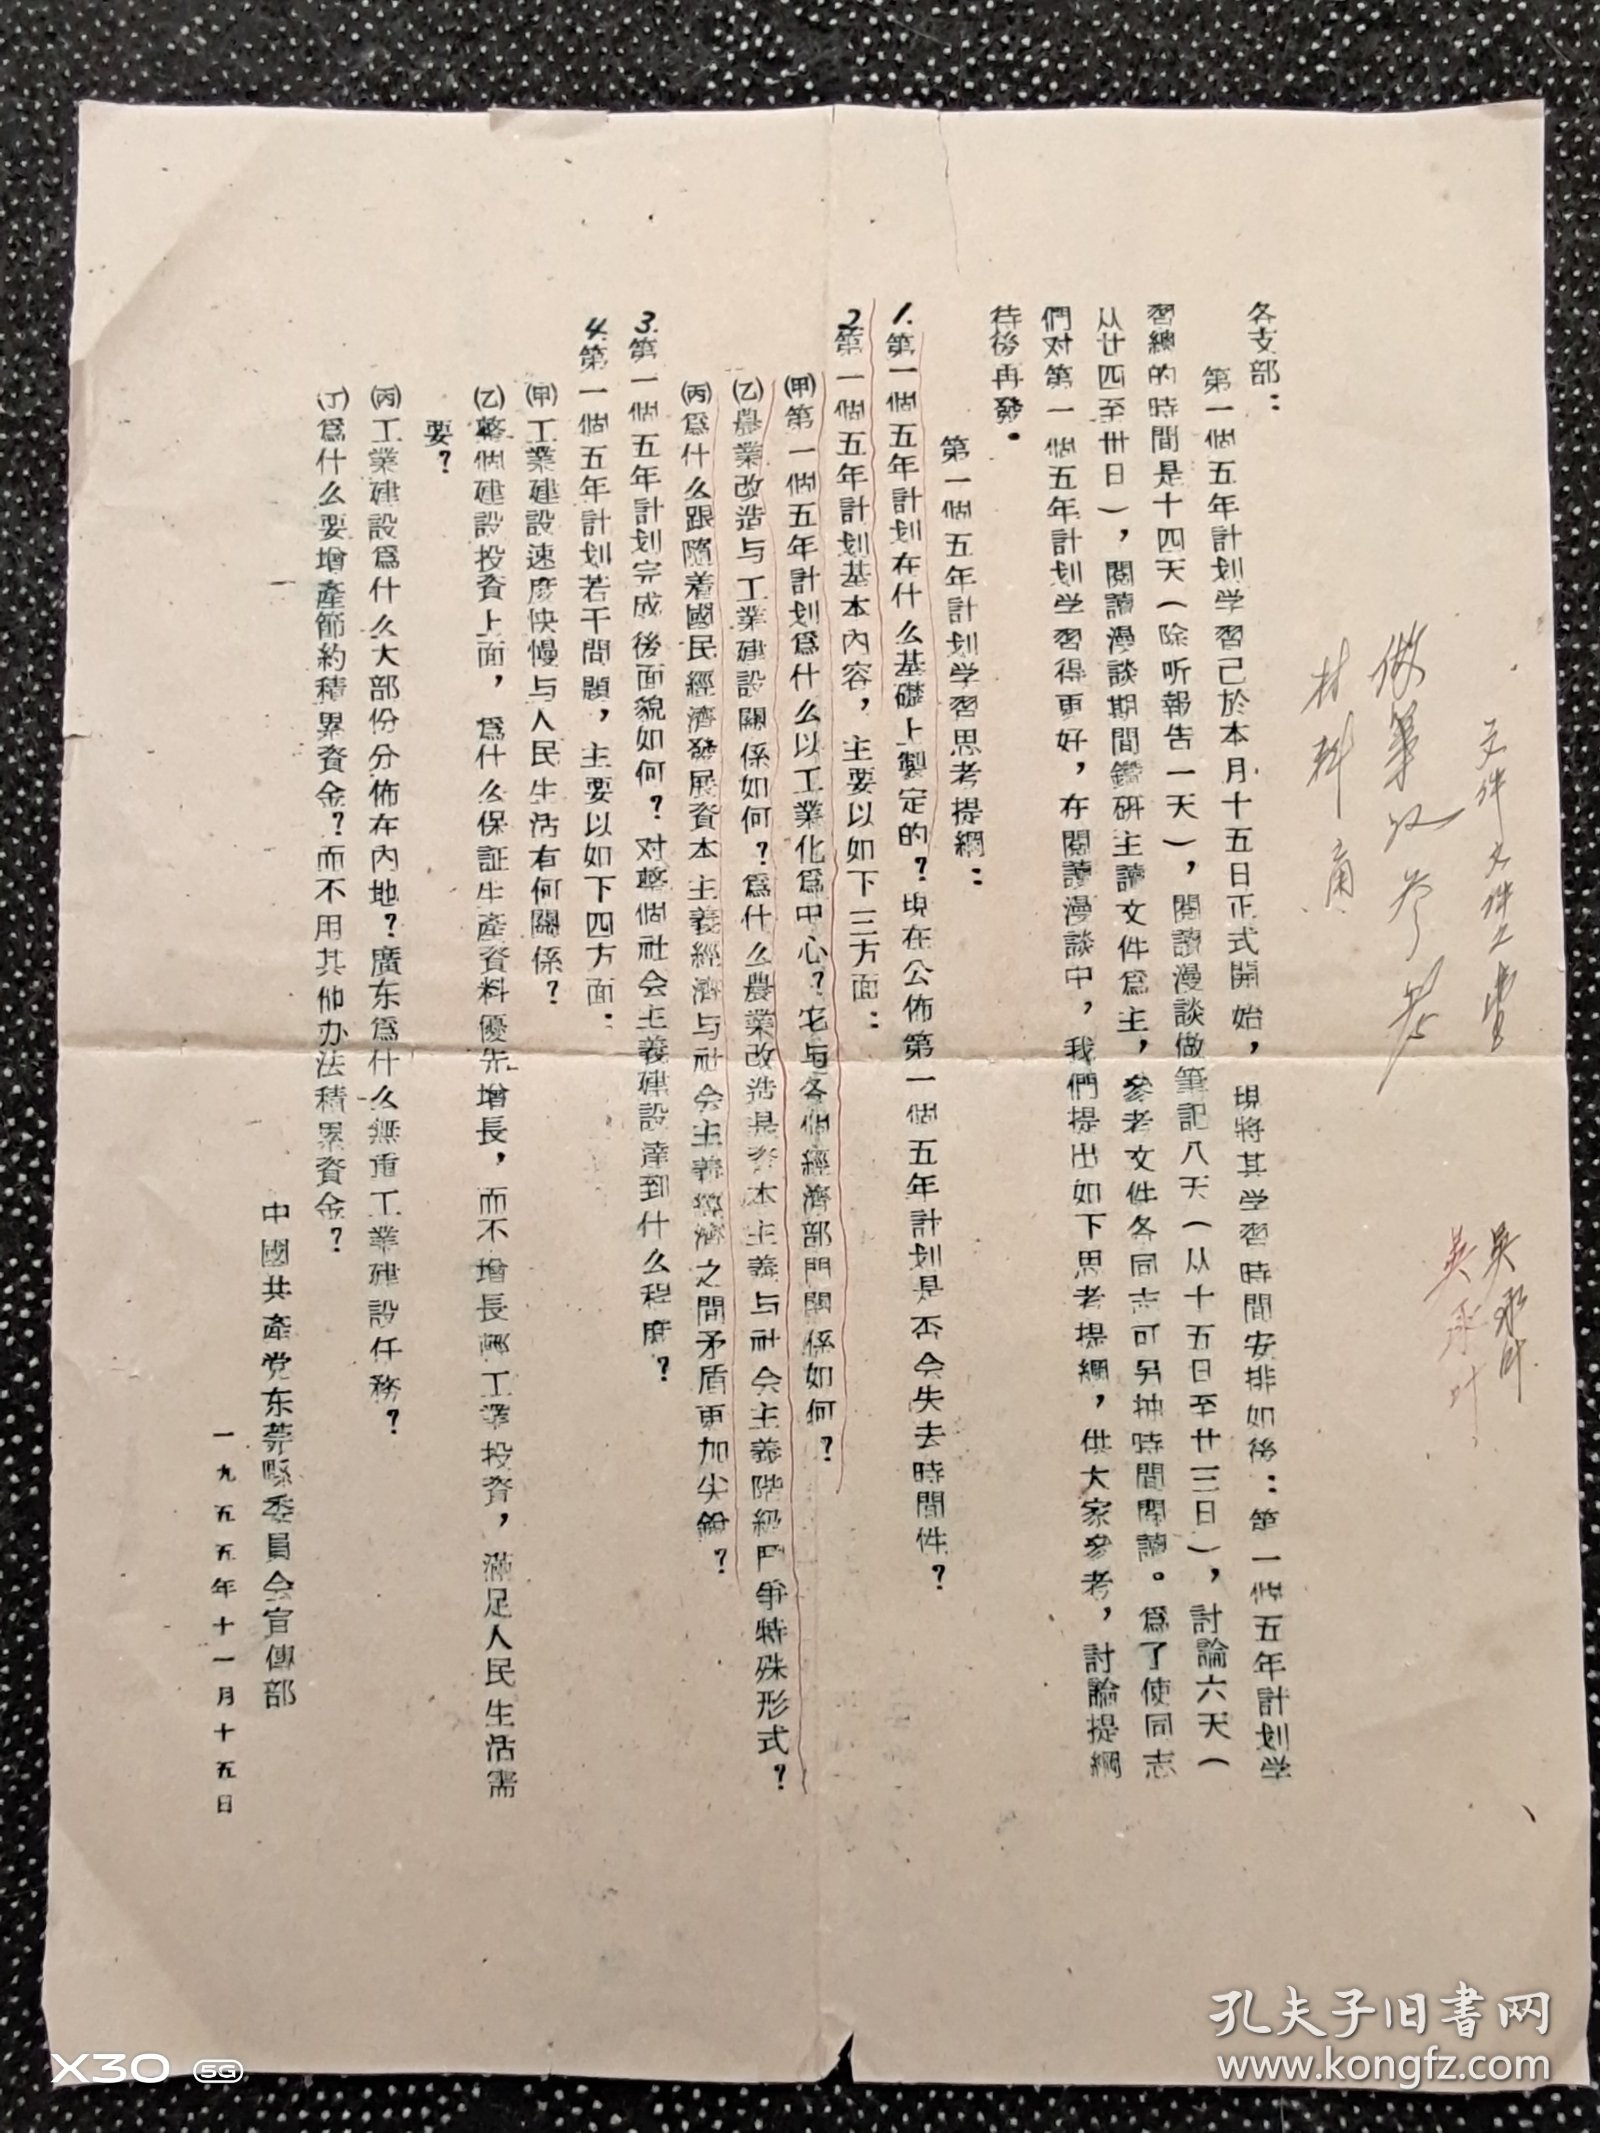 文件文件之書
做筆以参考
材料用
吳承叶
吳承叶
各支部：
第一個五年計划学習己於本月十五日正式開始，現將其学習時間安排如後：第一個五年計划学
習總的時間是十四天（除听報告一天），閱讀漫談做筆記八天（从十五日至廿三日），討論六天（
从廿四至卅日），閱讀漫談期間鑽研主讀文件爲主，參考文件各同志可另抽時間閱讀。爲了使同志
們对第一個五年計划学習得更好，在閱讀漫談中，我們提出如下思考提綱，供大家參考，討論提綱
待後再發。
第一個五年計划学習思考提綱：
1.第一個五年計划在什么基礎上製定的？現在公佈第一個五年計划是否会失去時間性？
2.第一個五年計划基本內容，主要以如下三方面：
㈲第一個五年計划爲什么以工業化爲中心？它与各個經濟部門關係如何？
㈪農業改造与工業建設關係如何？爲什么農業改造是資本主義与社会主義階級鬥爭特殊形式？
㈫爲什么跟隨着國民經濟發展資本主義經濟与社会主義經濟之間矛盾更加尖銳？
3.第一個五年計划完成後面貌如何？对整個社会主義建設達到什么程度？
4.第一個五年計划若干問題，主要以如下四方面：
(甲)工業建設速度快慢与人民生活有何關係？
(乙)整個建設投資上面，爲什么保証生產資料優先增長，而不增長輕工業投資，滿足人民生活需
要？
(丙)工業建設爲什么大部份分佈在內地？廣东爲什么無重工業建設任務？
(丁)爲什么要增產節約積累資金？而不用其他办法積累資金？
中國共產党东莞縣委員会宣傳部
一九五五年十一月十五日
X30 5G
孔夫子旧書网
www.kongfz.com